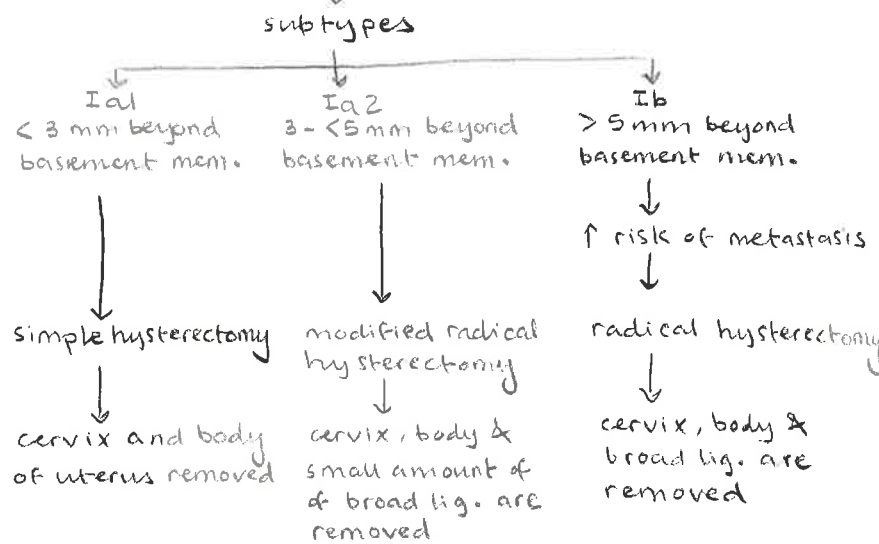 subtypes
Ia1
< 3 mm beyond
basement mem.
simple hysterectomy
cervix and body
of uterus removed
Ia2
3 - <5 mm beyond
basement mem.
modified radical
hysterectomy
cervix, body &
small amount of
of broad lig. are
removed
Ib
> 5 mm beyond
basement mem.
↑ risk of metastasis
radical hysterectomy
cervix, body &
broad lig. are
removed